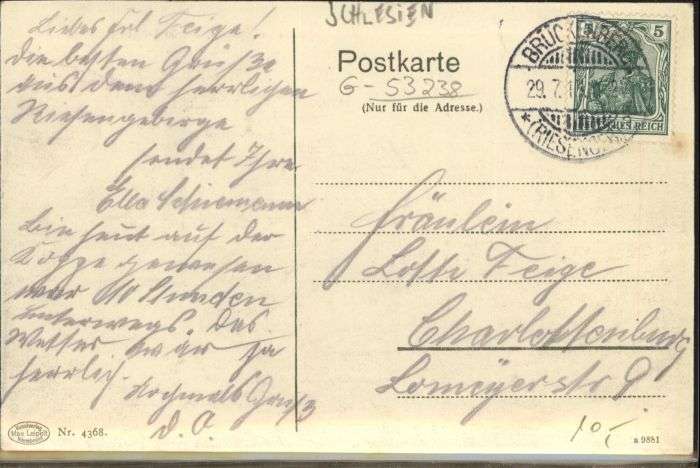 SCHLESIEN
Postkarte
G-53238
(Nur für die Adresse.)
BRÜCKENBERG
29. 7. 1
*(RIESENGEB.)
5
DEUTSCHES REICH
Liebes Frl. Feige!
die besten Grüße
aus dem herrlichen
Riesengebirge
sendet Ihre
Ella Schiemann
Bin heut auf der
Koppe gewesen
war 10 Stunden
unterwegs. Das
Wetter war ja
herrlich.
Nochmals Gruß
D. O.
Fräulein
Lotte Feige
Charlottenburg
Lomeyerstr 9
10,-
Max Leipelt
Nr. 4368.
a 9881